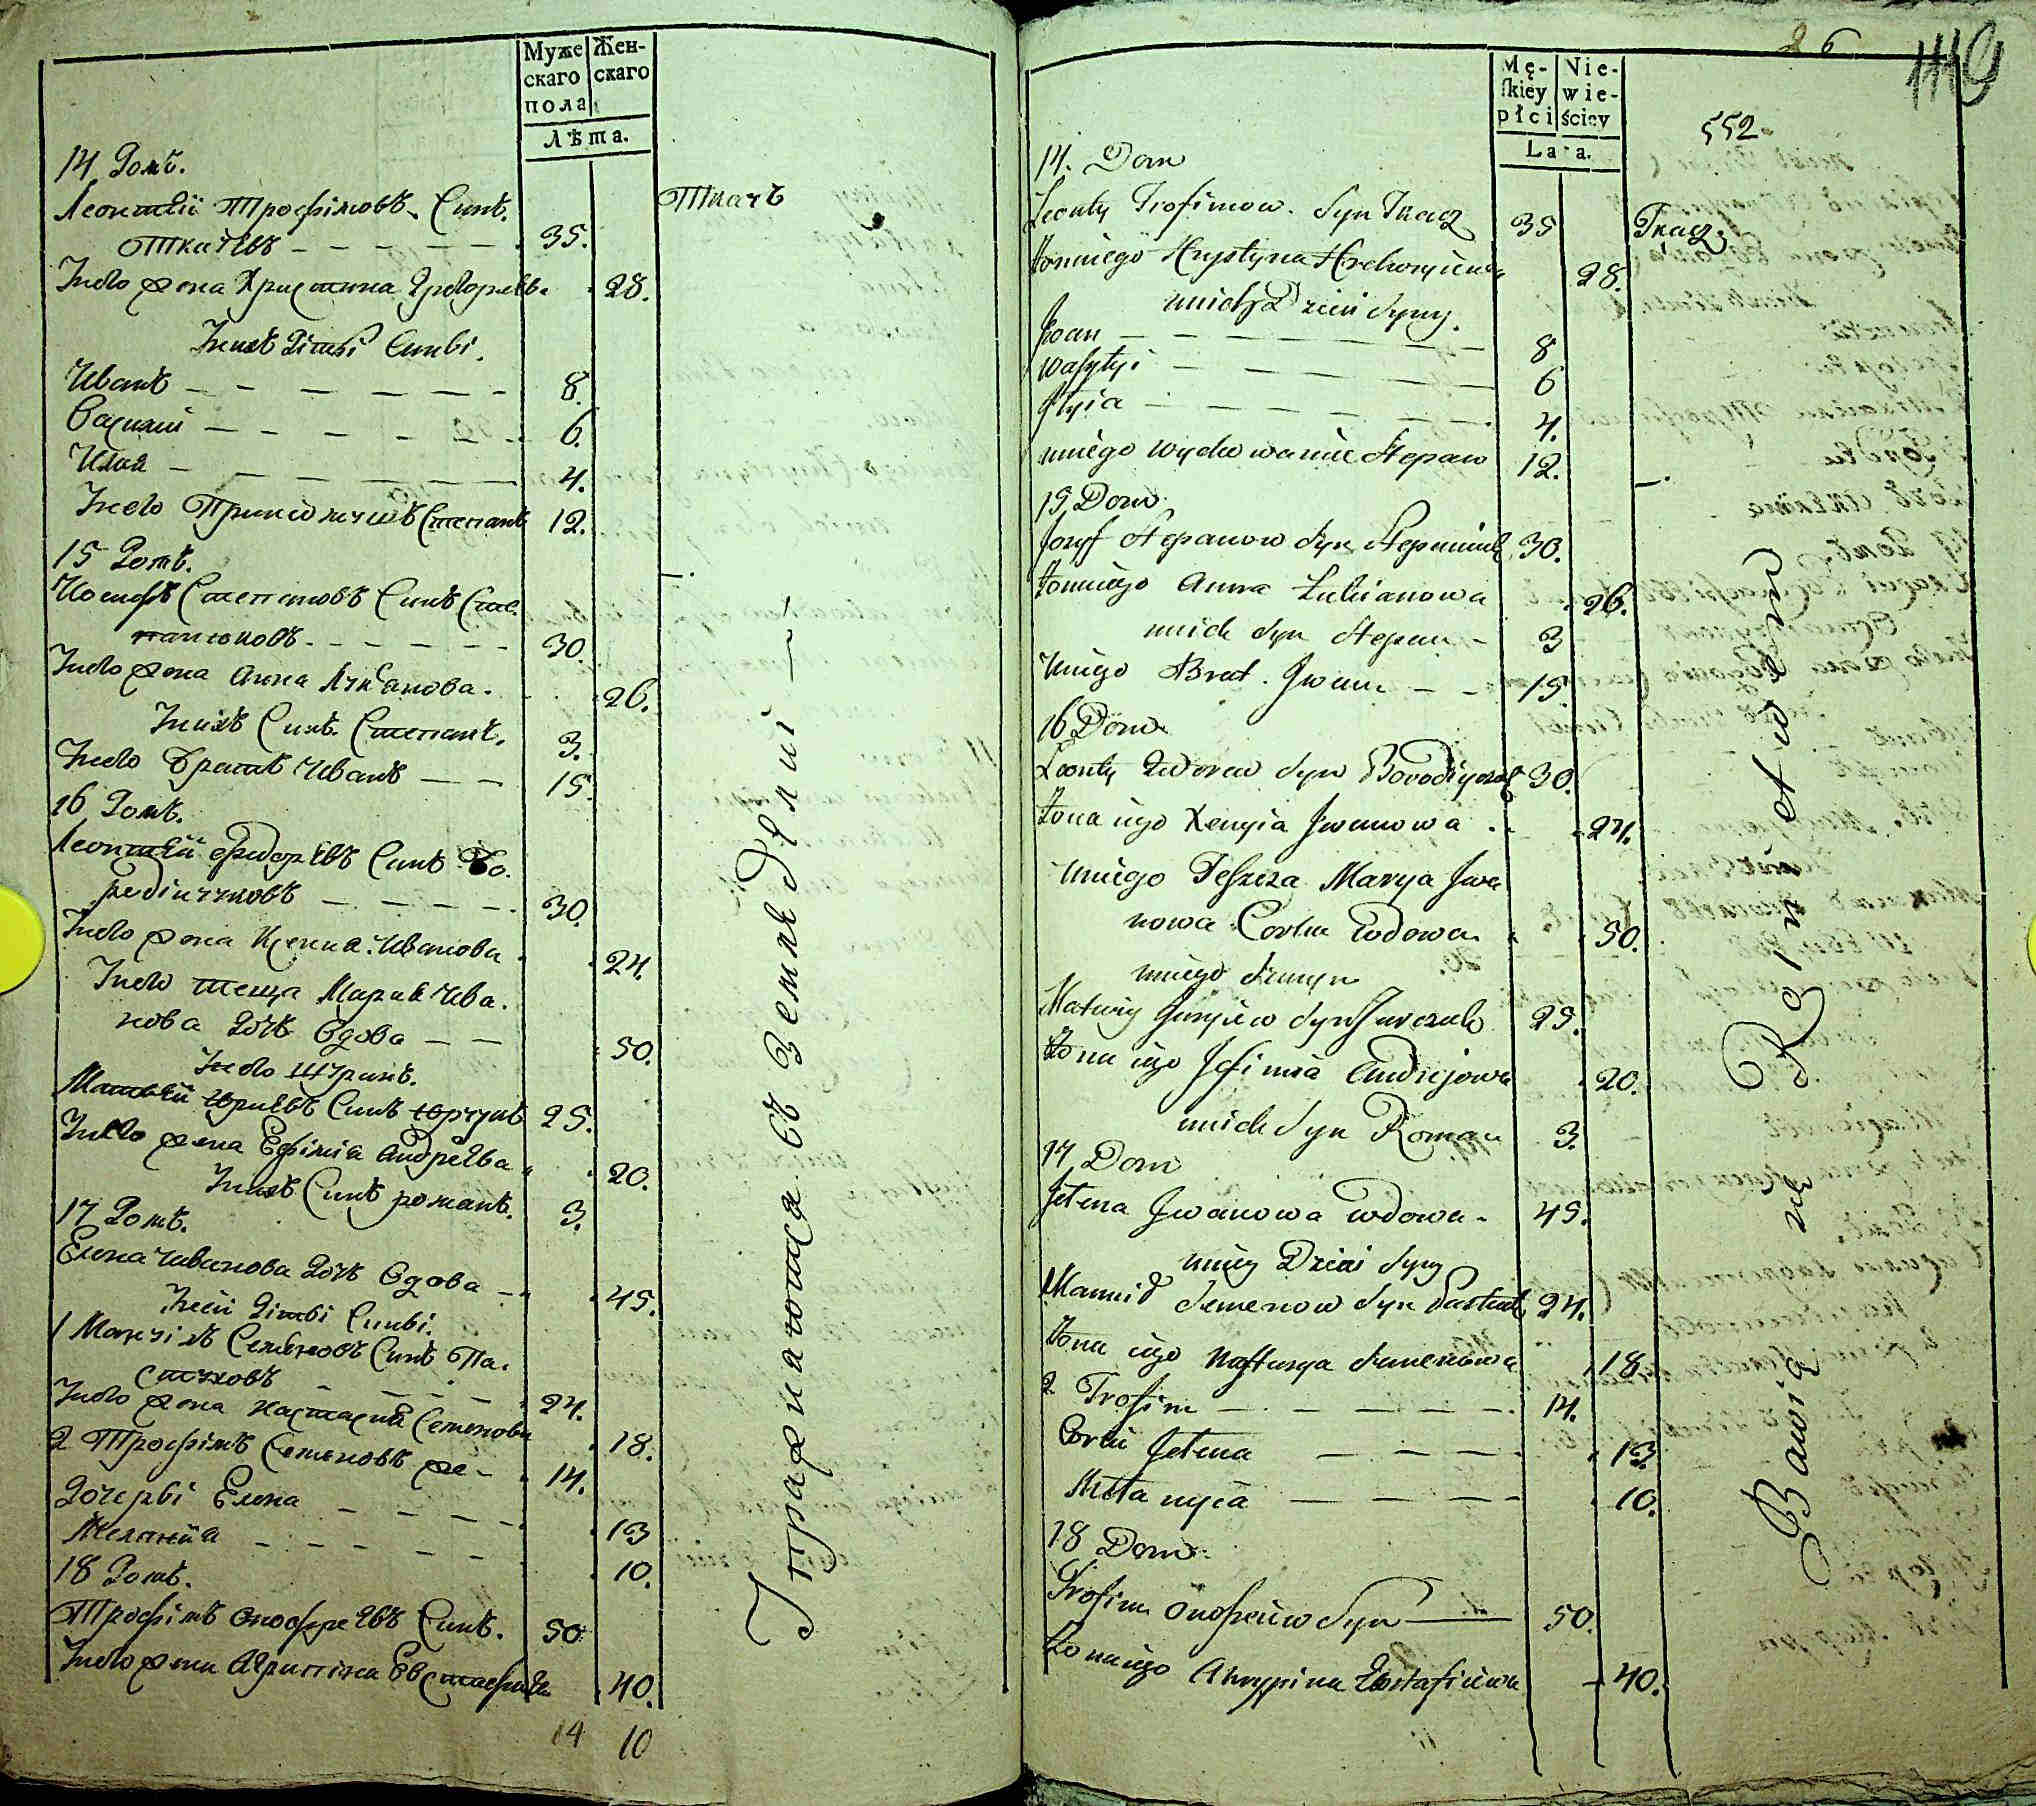 Муже
скаго
пола
Жен-
скаго
Лѣта.
14 Домъ.
Леонтий Трофимовъ Синъ.
Ткачевъ — — — — — 35.
Ткачъ
У него жена Христина Григориева 28.
У нихъ Дѣти Синви.
Иванъ — — — — — — 8.
Василий — — — — — — 6.
Илия — — — — — — 4.
У него Степанъ 12.
15 Домъ.
Иосифъ Степановъ Синъ Сте-
панюковъ — — — — — 30.
У него жена Анна Лукианова. 26.
У нихъ Синъ Степанъ. 3.
У него братъ Иванъ — — 15.
16 Домъ.
Леонтий Фиодоровъ Синъ Бо-
родинчуковъ — — — — 30.
У него жена Ксения Иванова 24.
У него теща Мария Ива-
нова Дочъ Вдова — — 50.
У него Шуринъ.
Матвѣй Юриевъ Синъ Юрчукъ 25.
У него жена Ефимия Андреева 20.
У нихъ Синъ романъ. 3.
17 Домъ.
Елена Иванова Дочъ Вдова — 45.
У ней Дѣти Синви.
1 Семеновъ Синъ Па-
стуховъ — — — — 24.
У него жена Настасия Семенова 18.
2 Трофимъ Семеновъ же — 14.
Дочерви Елена — — — — 13
Мелания — — — — — — 10.
18 Домъ.
Трофимъ Онофреевъ Синъ. 50
У него жена Агрипина Евстафиева 40.
14 10
Упражняющся въ Земледѣлиї —
26
1119
552
Mę-
ſkiey
płci
Nie-
wie-
ściey
Lata.
14. Dom
Leonty Trofimow Syn Tkacz 35
Tkacz.
Żona iego Hrystyna Hrehoryiewa 28.
u nich Dzieci Syny.
Jwan — — — — — — 8
Wasylyi — — — — — 6
Jlyia — — — — — — 4.
u niego wychowaniec Stepan 12.
15 Dom
Jozyf Stepanow Syn Stepaniuk 30.
Żona iego Anna Łukianowa 26.
u nich Syn Stepan — 3
U niego Brat Jwan — — 15.
16 Dom
Leonty Syn 30.
Żona iego Xenyia Jwanowa 24.
U niego Teszcza Marya Jwa
nowa Corka Wdowa 50.
u niego Szuryn
Matwiy Juryiew Syn Jurczuk 25.
Żona iego Jefimia Andrejowa 20.
u nich Syn Roman 3.
17 Dom
Jelena Jwanowa Wdowa — 45.
u niey Dzieci Syny
Semenow Syn Pastuch 24.
Żona iego Nastasya Semenowa 18.
2 Trofim — — — — — — 14.
Corki Jelena — — — — 13.
Mełanyia — — — — — 10.
18 Dom
Trofim Onofreiew Syn — 50.
Żona iego Ahrypina Ewstafiiewa 40.
Bawią się Rolnictwem